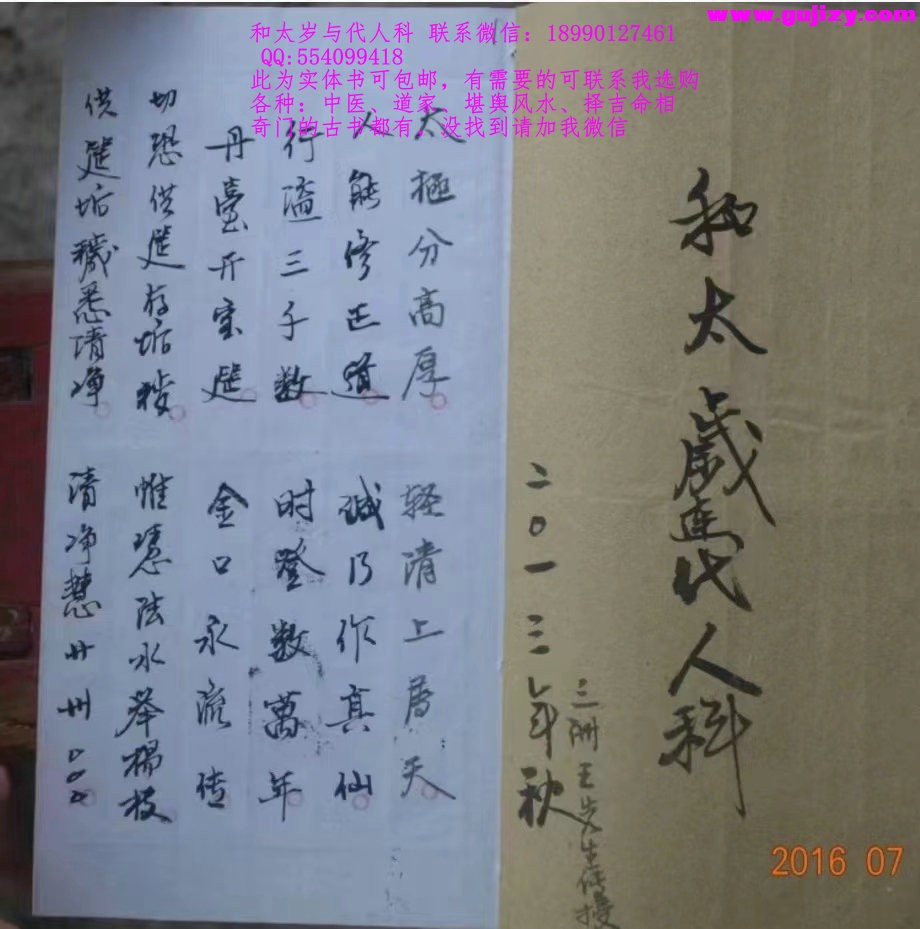 www.gujizy.com
和太岁与代人科 联系微信：18990127461
QQ:554099418
此为实体书可包邮，有需要的可联系我选购
各种：中医、道家、堪舆风水、择吉命相
奇门的古书都有，没找到请加我微信
和太歲连代人科
二0一三年秋
三洲王先生传授
太極分高厚 轻清上居天
人能修正道 诚乃作真仙
行溢三千数 时登数萬年
丹臺开宝筵 金口永流传
切恐供筵有垢秽 惟凭法水举楊枝
供筵垢穢悉清净 清净慧
2016 07